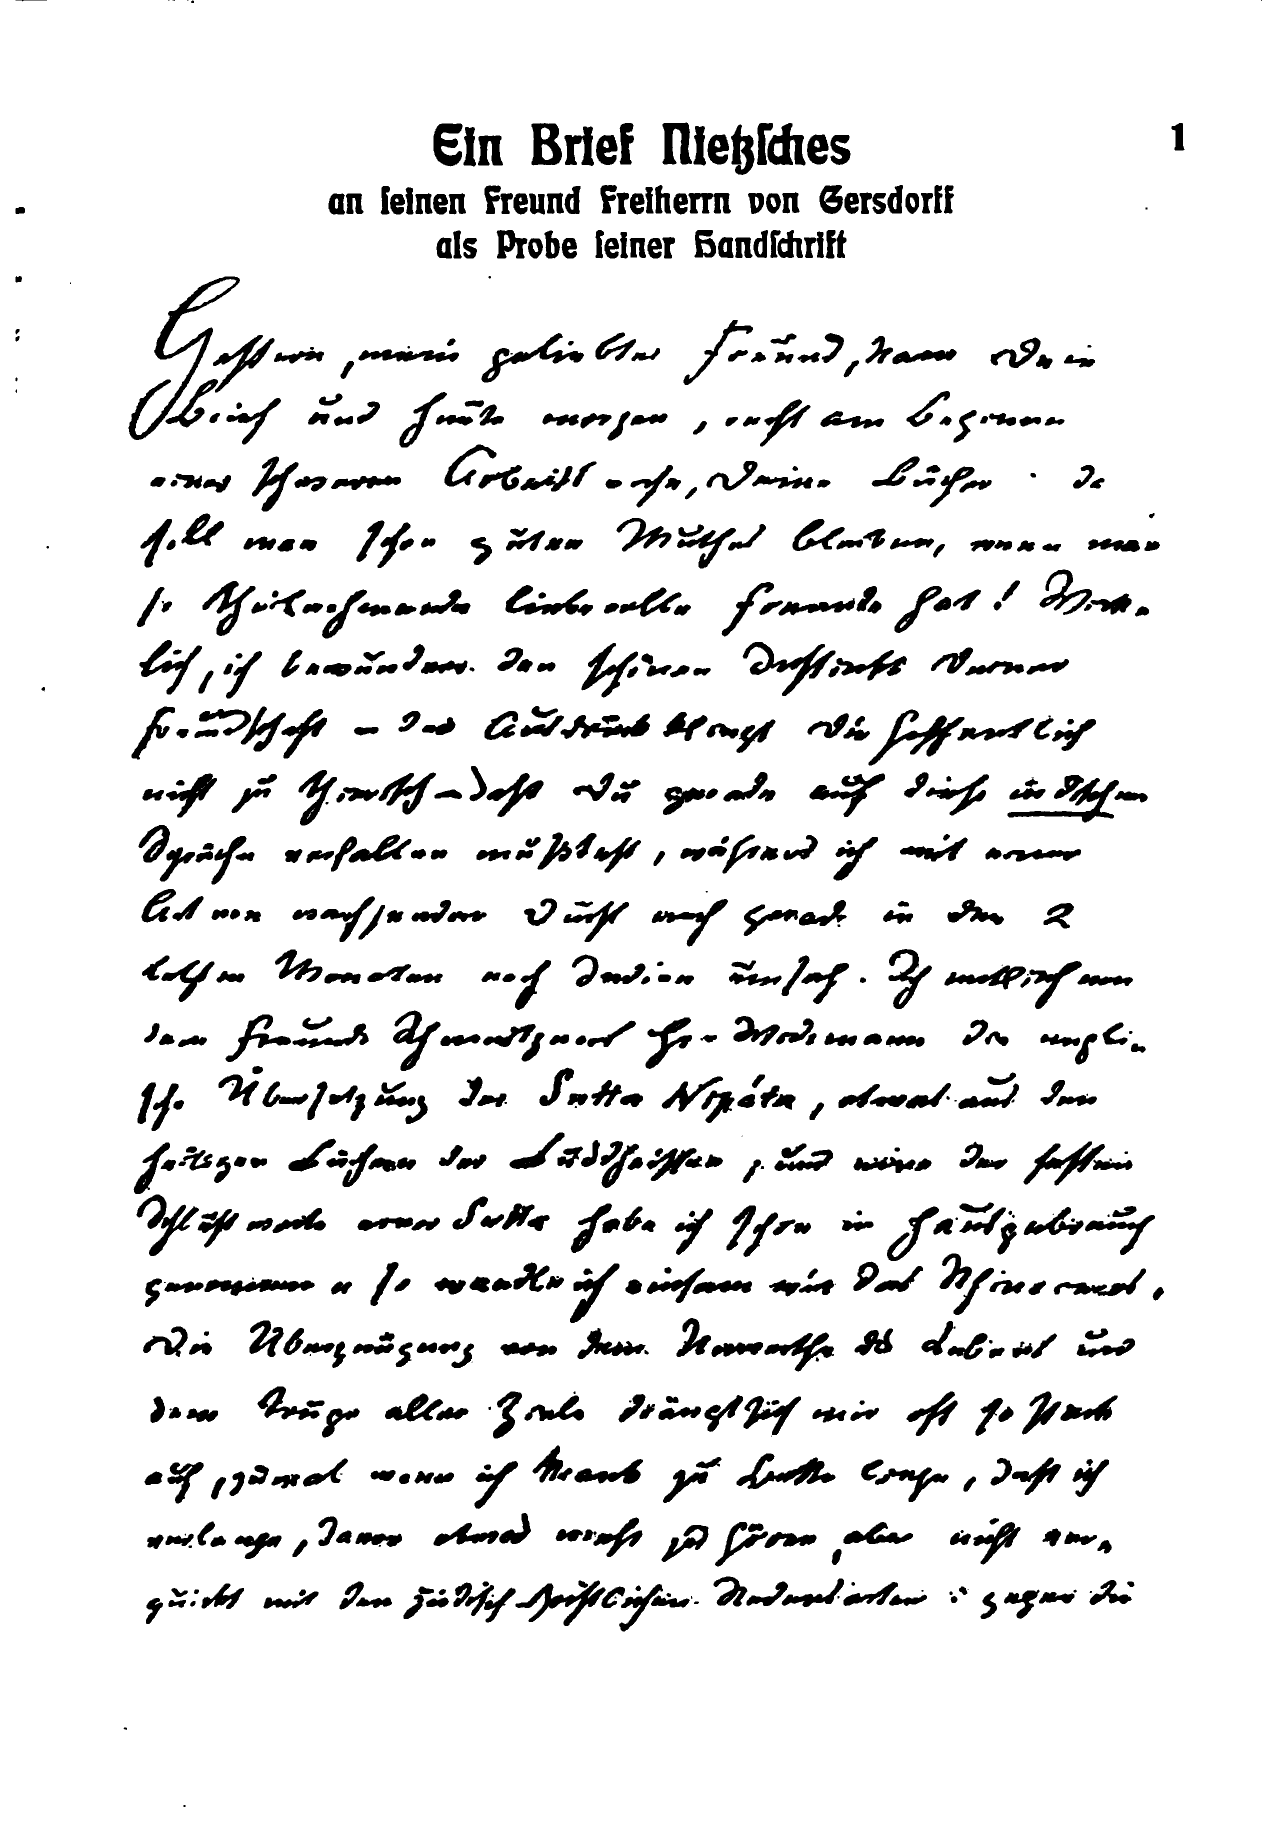 Ein Brief Nietzsches
1
an seinen Freund Freiherrn von Gersdorff
als Probe seiner Handschrift
Gestern, mein geliebter Freund, kam Dein
Brief und heute morgen, recht am Beginne
einer schweren Arbeitswoche, Deine Bücher: da
soll man schon guten Muthes bleiben, wenn man
so theilnehmende liebevolle Freunde hat! Wirk-
lich, ich bewundere den schönen Instinkt Deiner
Freundschaft – der Ausdruck klingt Dir hoffentlich
nicht zu thierisch – daß Du gerade auf diese indischen
Sprüche verfallen mußtest, während ich mit einer
Art von wachsendem Durst mich gerade in den 2
letzten Monaten nach Indien umsah. Ich entlieh von
dem Freunde Schmeitzners Hrn Widemann die engli-
sche Übersetzung der Sutta Nipáta, etwas aus den
heiligen Büchern der Buddhaisten, und eine der festen
Schlußworte einer Sutta habe ich schon in Hausgebrauch
genommen „so wandle ich einsam wie das Rhinoceros.
Die Überzeugung von dem Unwerthe des Lebens und
dem Truge aller Ziele drängt sich mir oft so stark
auf, zumal wenn ich krank zu Bette liege, daß ich
verlange, davon etwas mehr zu hören, aber nicht ver-
quickt mit den jüdisch-christlichen Redensarten: gegen die